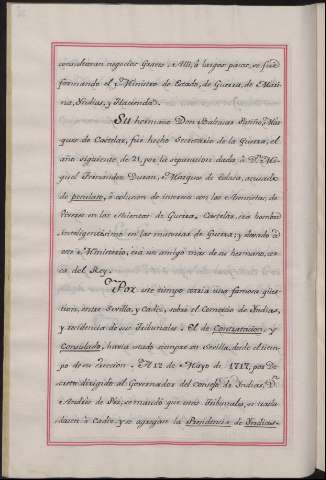 considerazan negocios Graves. Alli, á largos pasos, se fué
formando el Ministro de Estado, de Guerra, de Mari-
na, Yndias, y Hacienda.
Su hermano Don Baltasar Patiño, Mar-
ques de Castelar, fue hecho Secretario de la Guerra, el
año siguiente de 21, por la separacion dada á Dn. Mi-
guel Fernandez Duran, Marques de Tolosa, acusado
de peculato, ó colusion de interes con los Asentistas, de
Viveres en los asientos de Guerra. Castelar, era hombre
inteligentisimo en las materias de Guerra; y elevado á
este Ministerio, era un amigo mas de su hermano, cer-
ca del Rey.
Por este tiempo corria una famosa ques-
tion, entre Sevilla, y Cadiz, sobre el Comercio de Yndias,
y residencia de sus Tribunales. El de Contratacion, y
Consulado, havia estado siempre en Sevilla, desde el tiem-
po de su ereccion. A 12 de Mayo de 1717, por De-
creto dirigido al Governador del Consejo de Yndias, Dn.
Andres de Pés, se mandó que estos Tribunales, se trasla-
dasen á Cadiz y se agregase la Presidencia de Yndias